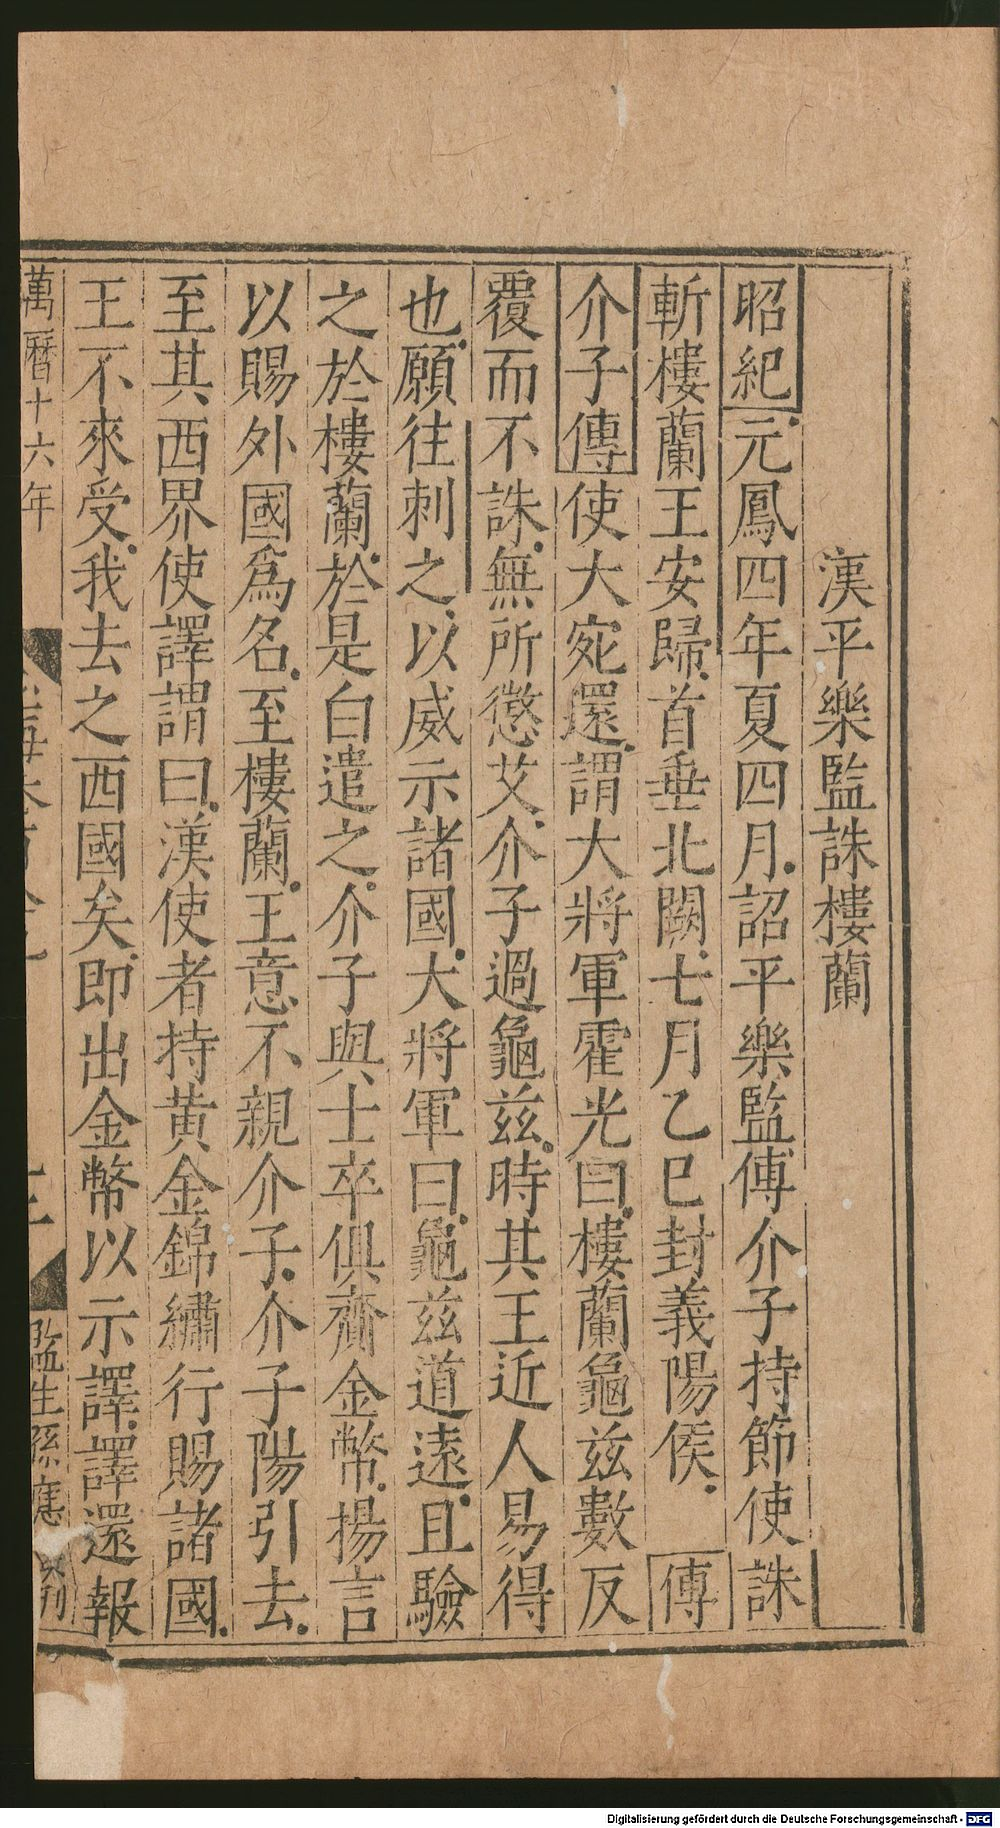 漢平樂監誅樓蘭
昭紀元鳳四年夏四月詔平樂監傅介子持節使誅
斬樓蘭王安歸首垂北闕七月乙巳封義陽侯傅
介子傳使大宛還謂大將軍霍光曰樓蘭龜兹數反
覆而不誅無所懲艾介子過龜兹時其王近人易得
也願往刺之以威示諸國大將軍曰龜兹道遠且驗
之於樓蘭於是白遣之介子與士卒俱齎金幣揚言
以賜外國爲名至樓蘭王意不親介子介子陽引去
至其西界使譯謂曰漢使者持黄金錦繡行賜諸國
王不來受我去之西國矣即出金幣以示譯譯還報
萬曆十六年
監生孫應 刊
Digitalisierung gefördert durch die Deutsche Forschungsgemeinschaft - DFG